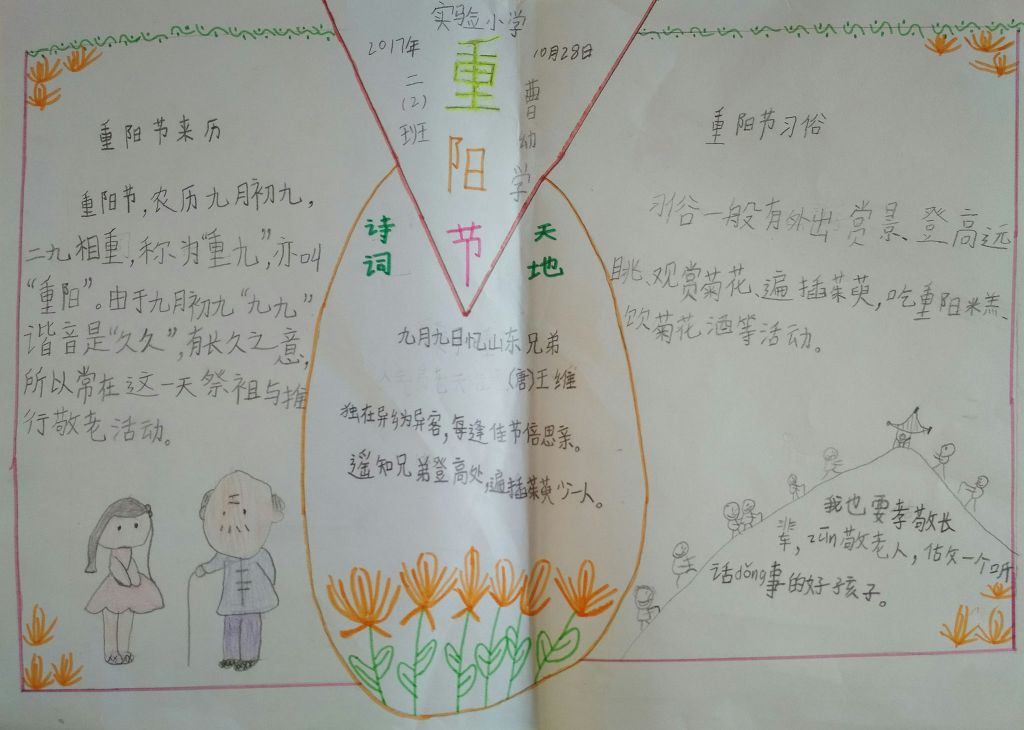 实验小学
2017年
10月28日
二
(2)
班
曹幼学
重阳节
重阳节来历
重阳节，农历九月初九，
二九相重，称为“重九”，亦叫
“重阳”。由于九月初九“九九”
谐音是“久久”，有长久之意，
所以常在这一天祭祖与推
行敬老活动。
诗词
天地
九月九日忆山东兄弟
(唐)王维
独在异乡为异客，每逢佳节倍思亲。
遥知兄弟登高处，遍插茱萸少一人。
重阳节习俗
习俗一般有外出赏景、登高远
眺、观赏菊花、遍插茱萸，吃重阳米羔、
饮菊花酒等活动。
我也要孝敬长
辈，zūn敬老人，做一个听
话dǒng事的好孩子。